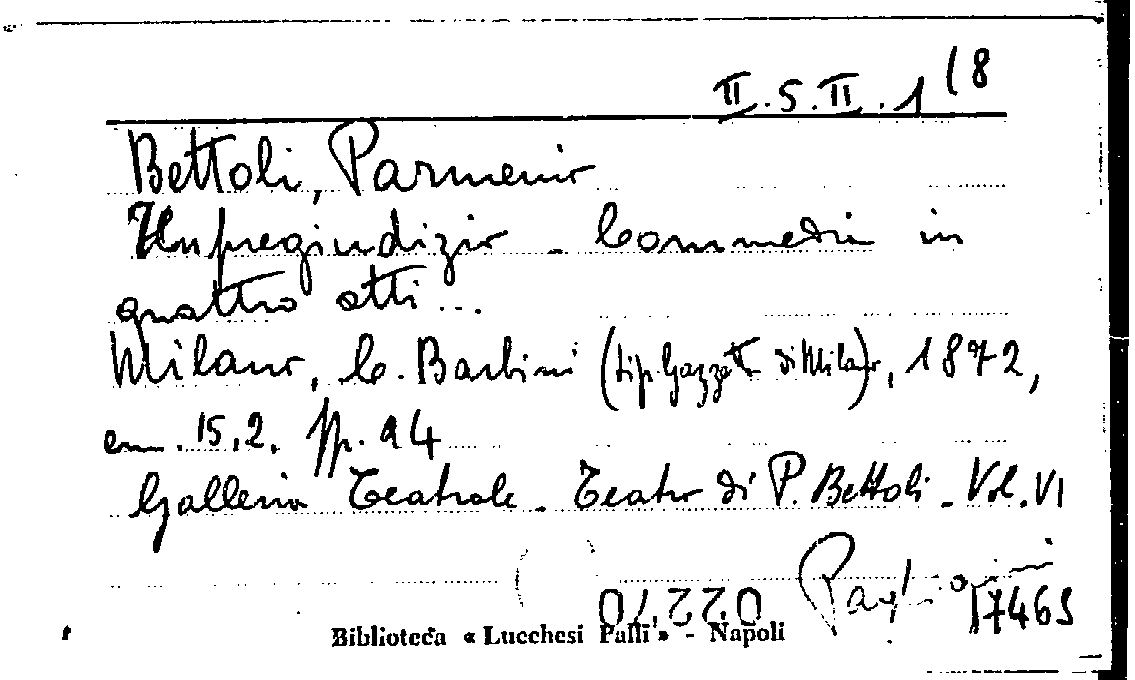 II.5.II.1 (8
Bettoli, Parmenio
Un pregiudizio - Commedia in
quattro atti...
Milano, C. Barbini (tip. Gazzett di Milano), 1872,
cm. 15,2. pp. 94
Galleria Teatrale - Teatro di P. Bettoli - Vol. VI
02270
17465
Biblioteca « Lucchesi Palli » - Napoli